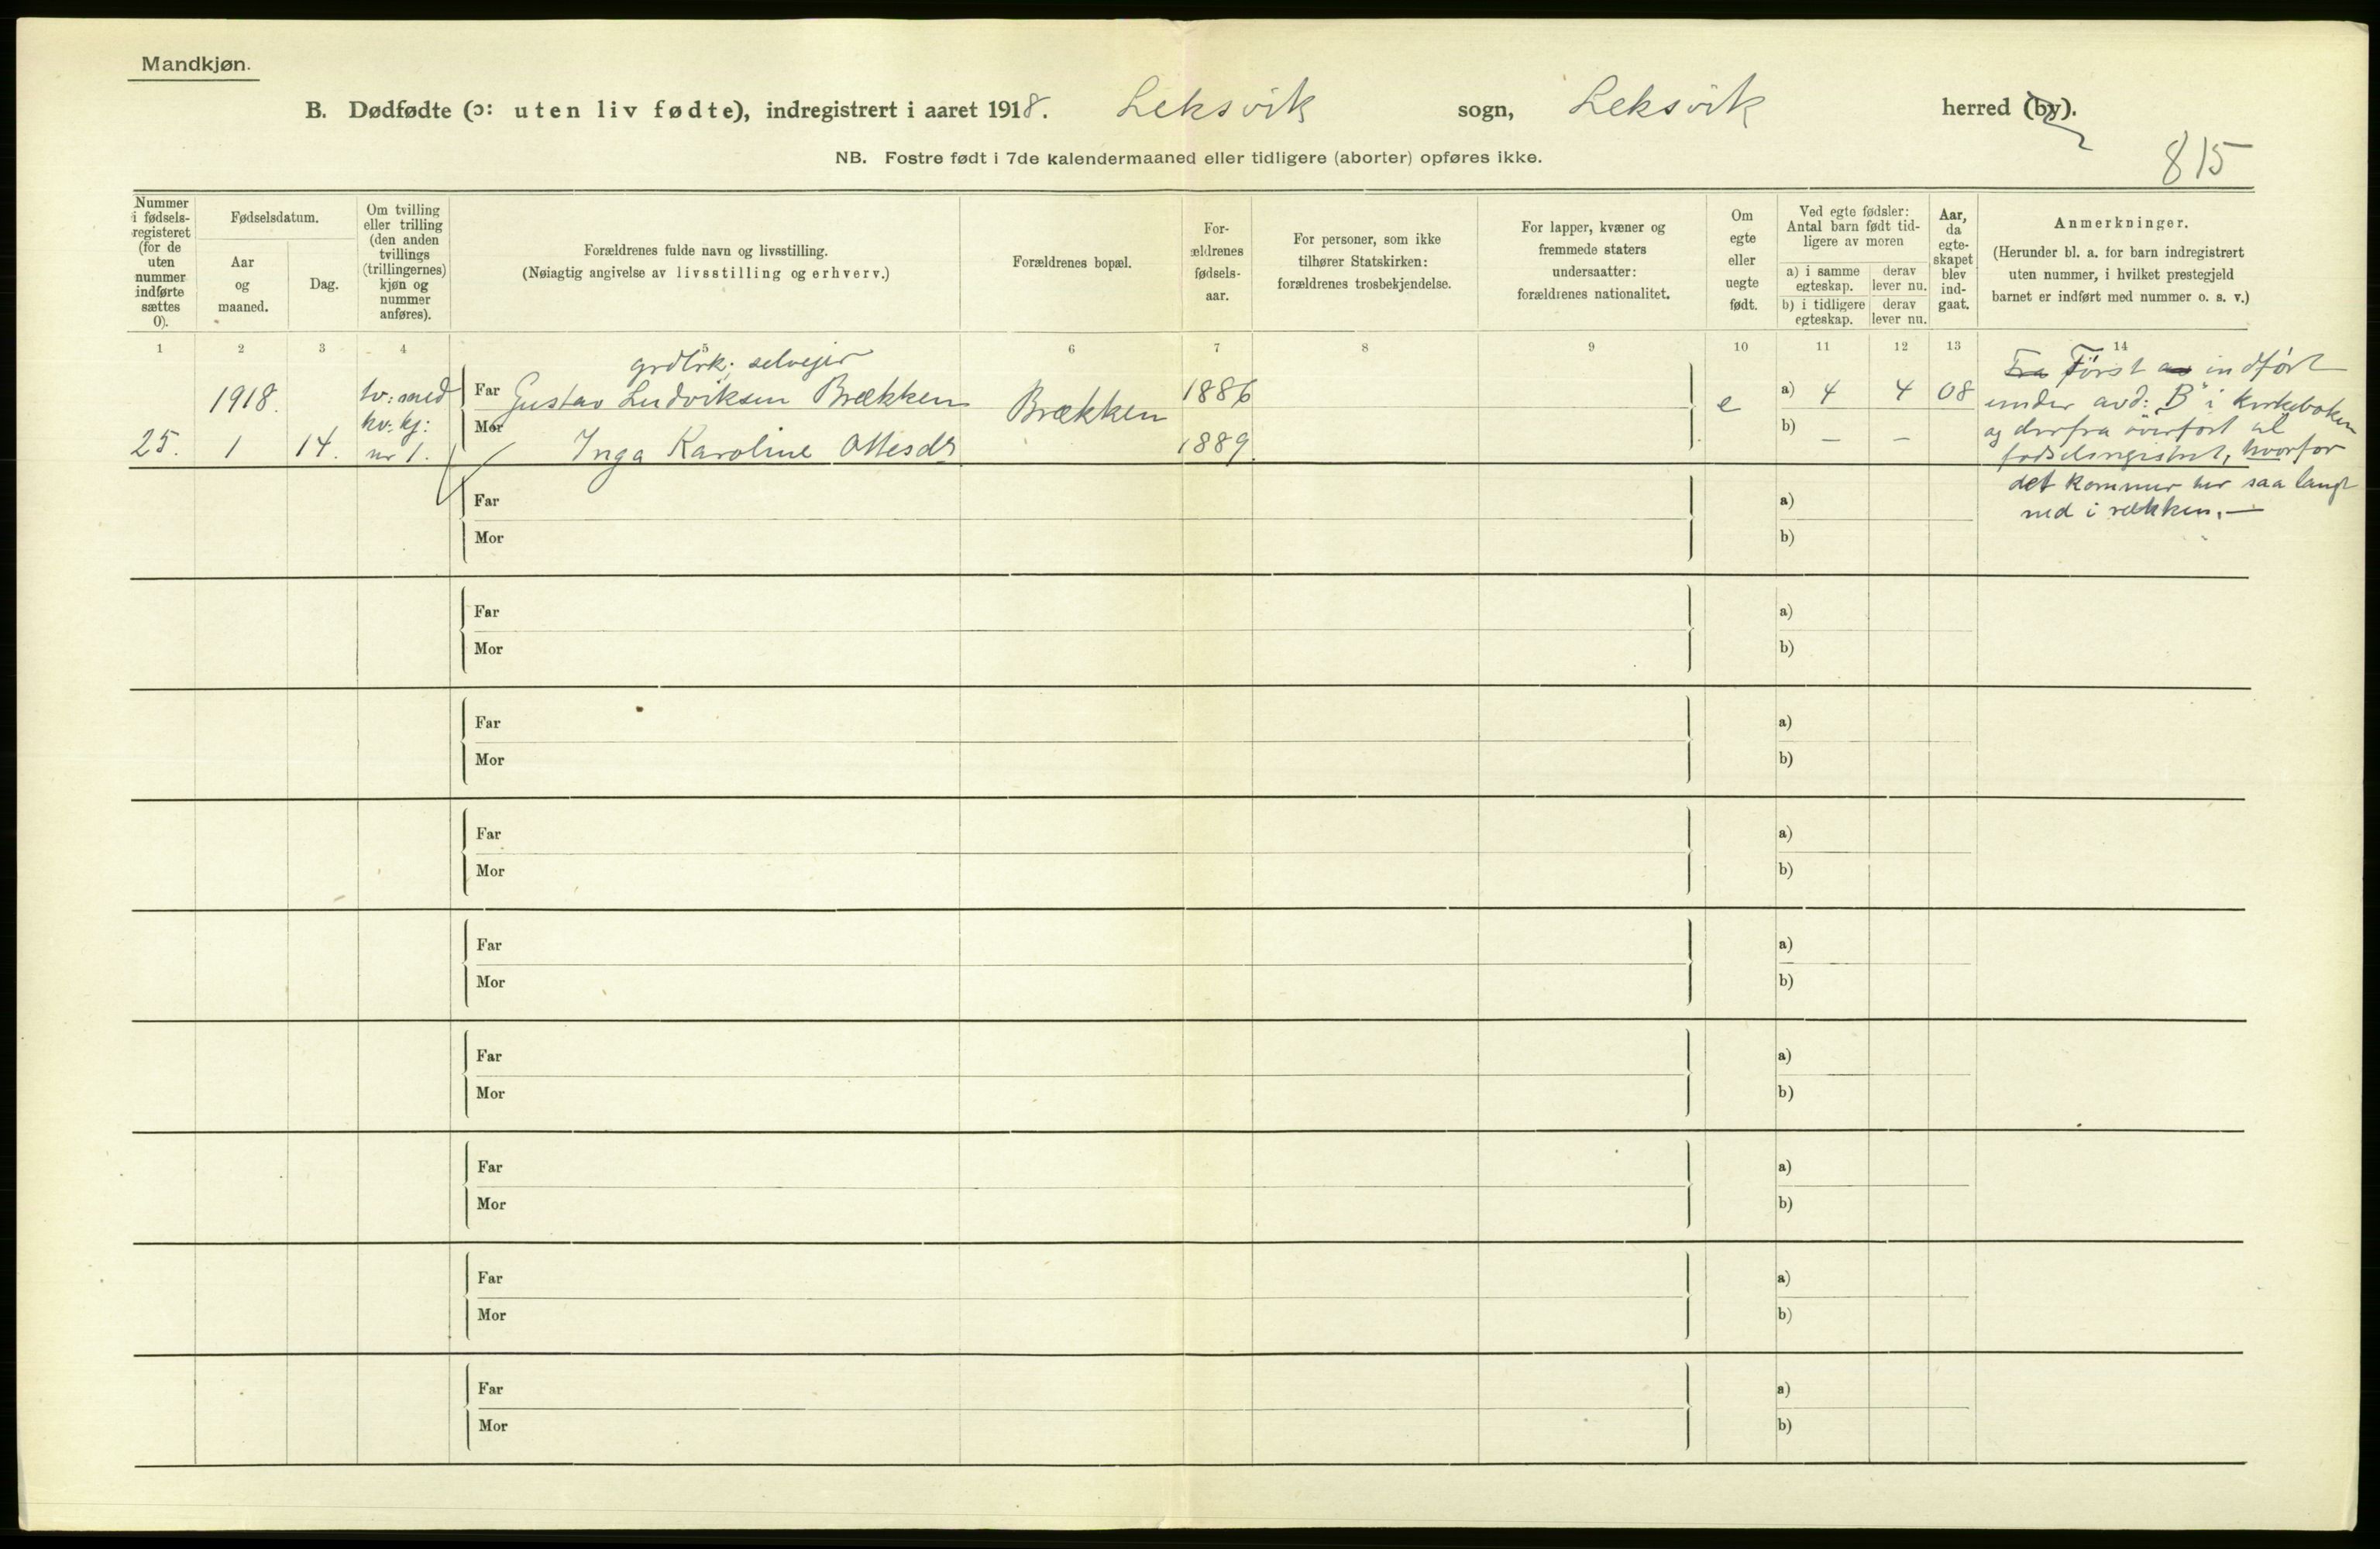 Mandkjøn.
B. Dødfødte (ɔ: uten liv fødte), indregistrert i aaret 1918. Leksvik sogn, Leksvik herred (by).
NB. Fostre født i 7de kalendermaaned eller tidligere (aborter) opføres ikke.
815
Nummer i fødsels-registeret (for de uten nummer indførte sættes 0).
Fødselsdatum.
Aar og maaned.
Dag.
Om tvilling eller trilling (den anden tvillings (trillingernes) kjøn og nummer anføres).
Forældrenes fulde navn og livsstilling.
(Nøiagtig angivelse av livsstilling og erhverv.)
Forældrenes bopæl.
For-ældrenes fødsels-aar.
For personer, som ikke tilhører Statskirken: forældrenes trosbekjendelse.
For lapper, kvæner og fremmede staters undersaatter: forældrenes nationalitet.
Om egte eller uegte født.
Ved egte fødsler: Antal barn født tid-ligere av moren
a) i samme egteskap.
derav lever nu.
b) i tidligere egteskap.
derav lever nu.
Aar, da egte-skapet blev ind-gaat.
Anmerkninger.
(Herunder bl. a. for barn indregistrert uten nummer, i hvilket prestegjeld barnet er indført med nummer o. s. v.)
1 2 3 4 5 6 7 8 9 10 11 12 13 14
25. 1918. 1 14.
tv: med
kv. kj:
nr 1.
grdbrk; selveier
Far Gustav Ludviksen Brækken
Mor Inga Karoline Ottesdr
Brækken
1886
1889.
e
a) 4 4 08
b) – –
Fra Først indført
under avd: "B" i kirkeboken
og derfra överfört til
fødselsregistret, hvorfor
det kommer her saa langt
ned i rækken. —
Far a)
Mor b)
Far a)
Mor b)
Far a)
Mor b)
Far a)
Mor b)
Far a)
Mor b)
Far a)
Mor b)
Far a)
Mor b)
Far a)
Mor b)
Far a)
Mor b)